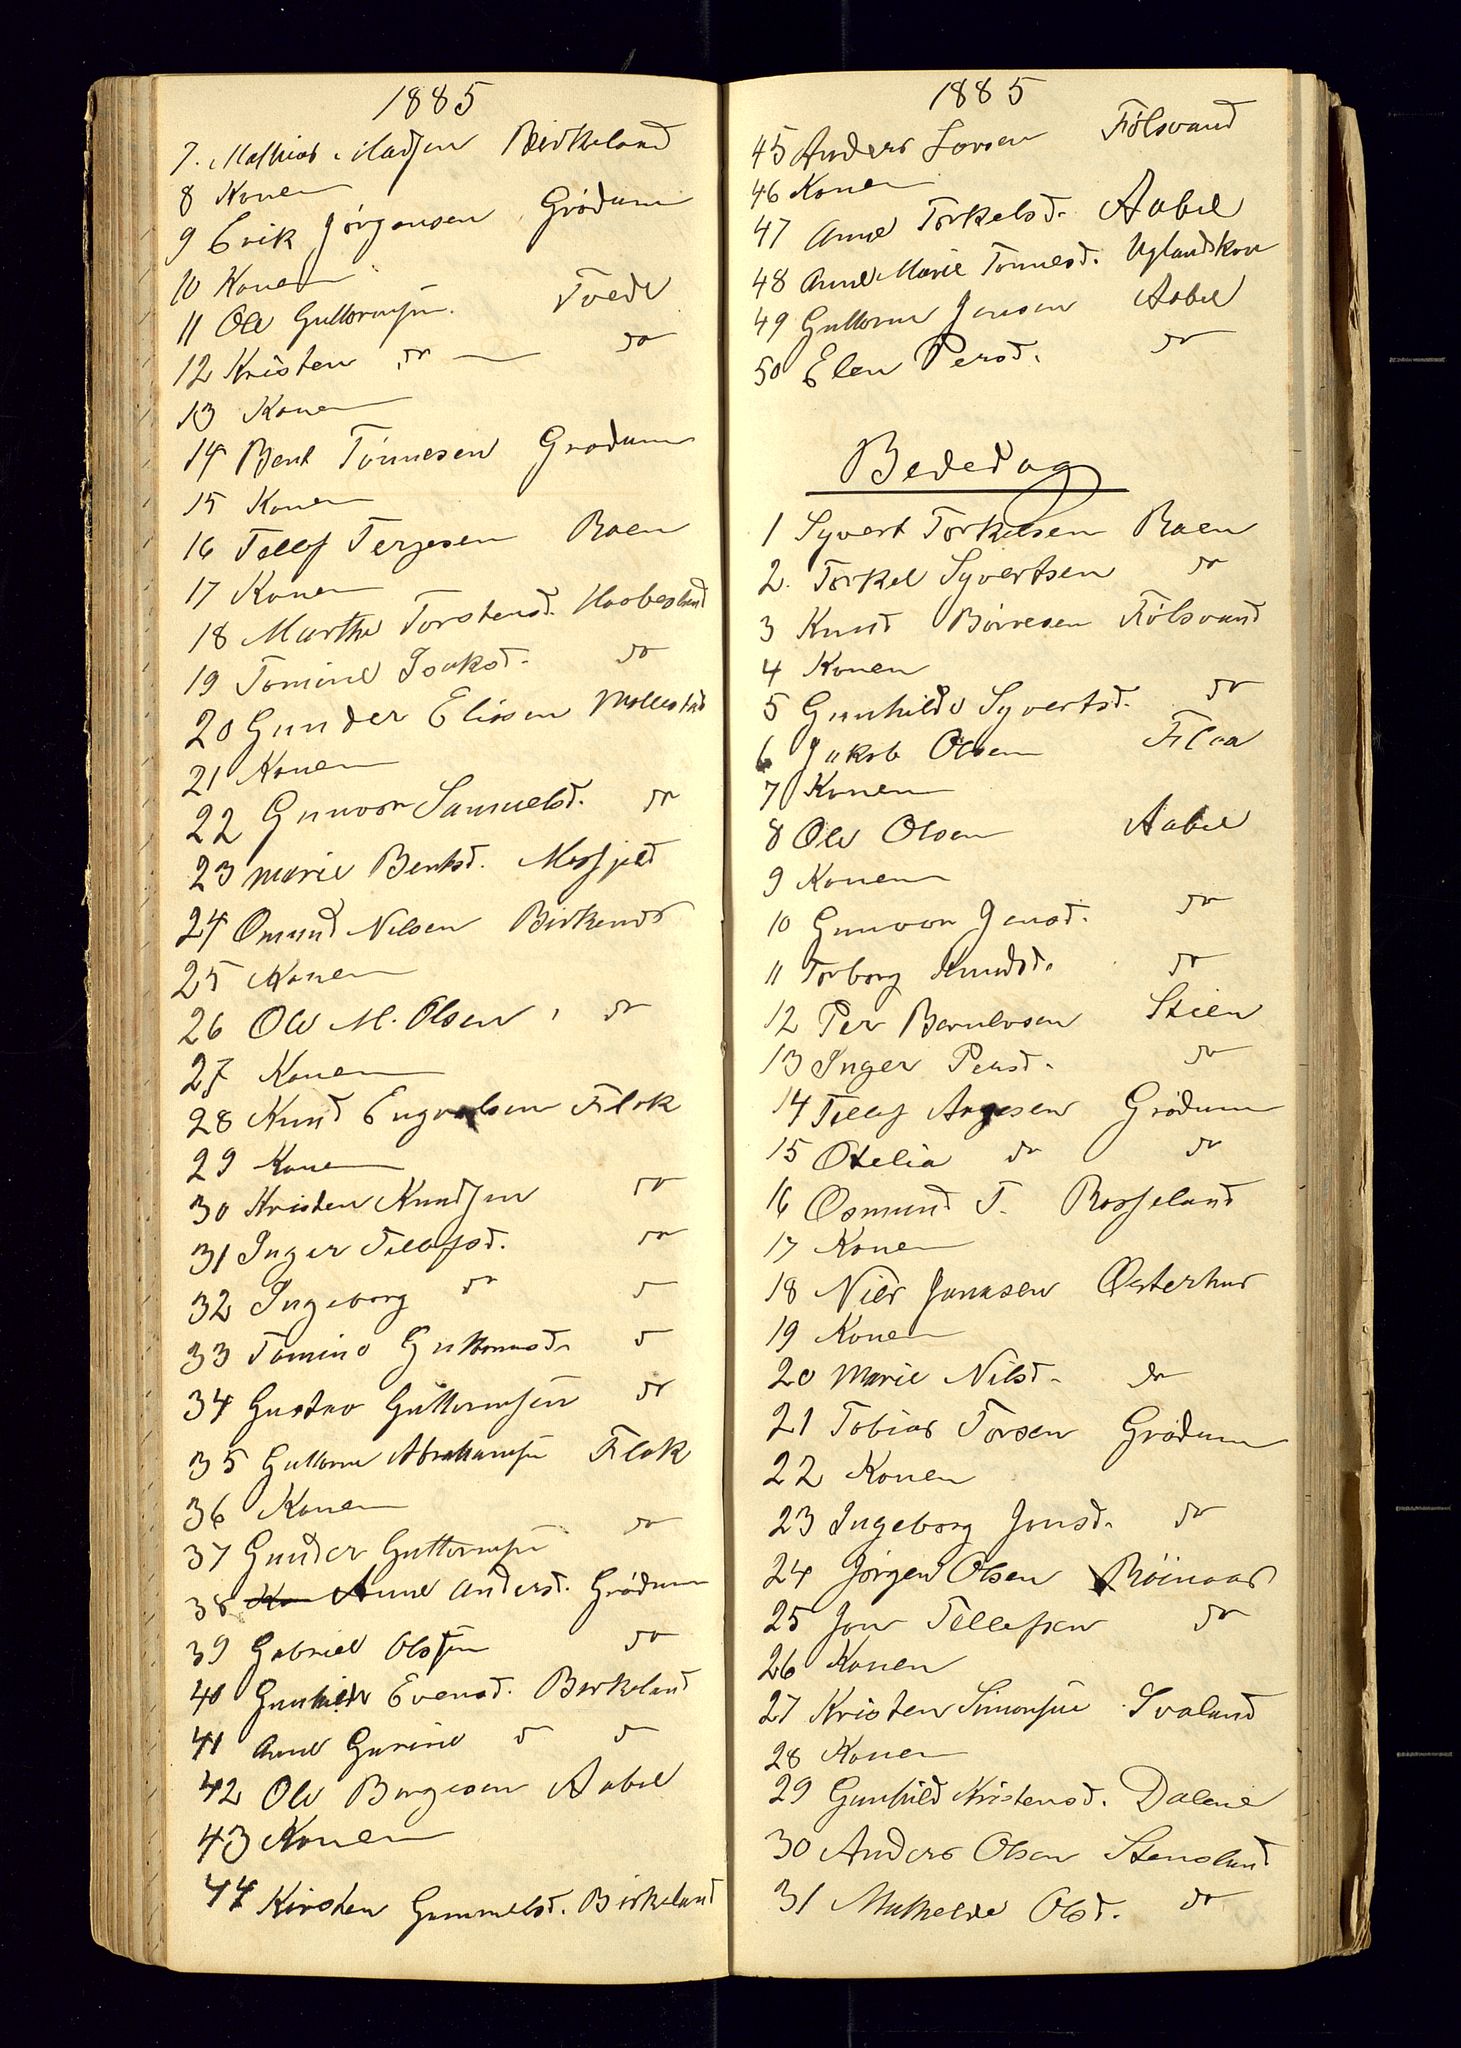 1885
7. Mathias Madsen Birkeland
8 Konen
9 Erik Jørgensen Grødum
10 Konen
11 Ole Guttormsen. Tvede
12 Kristen do do
13 Konen
14 Bent Tønnesen Grødum
15 Konen
16 Tellef Terjesen Roen
17 Konen
18 Marthe Torstensd. Haabestad
19 Tomine Isaksd. do
20 Gunder Elissen Mollestad
21 Konen
22 Gunvor Samuelsd. do
23 Marie Bentsd. Mosfjeld
24 Omund Nilsen Birkenes
25 Konen
26 Ole M. Olsen do
27 Konen
28 Knud Engvalsen Flak
29 Konen
30 Kristen Knudsen do
31 Inger Tellefsd. do
32 Ingeborg do do
33 Tomine Guttormsd. do
34 Gustav Guttormsen do
35 Guttorm Abrahamsen Flak
36 Konen
37 Gunder Guttormsen do
38 Anne Andersd. Grødum
39 Gabriel Olsen do
40 Gunhilde Evensd. Birkeland
41 Anne Gurine do do
42 Ole Børgesen Aabel
43 Konen
44 Kirsten Gummelsd. Birkeland
1885
45 Anders Larsen Følsvand
46 Konen
47 Anne Torkelsd. Aabel
48 Anne Marie Tønnesd. Uglandskon
49 Guttorm Jensen Aabel
50 Elen Persd. do
Bededag
1 Syvert Torkelsen Roen
2. Torkel Syvertsen do
3 Knud Børresen Følsvand
4 Konen
5 Gunhilde Syvertsd. do
6 Jakob Olsen Flaa
7 Konen
8 Ole Olsen Aabel
9 Konen
10 Gunvor Jensd. do
11 Torborg Knudsd. do
12 Per Berulvsen Stien
13 Inger Persd. do
14 Tellef Aagesen Grødum
15 Otelia do do
16 Osmund T. Rosseland
17 Konen
18 Niels Jonassen Østerhus
19 Konen
20 Marie Nilsd. do
21 Tobias Torsen Grødum
22 Konen
23 Ingeborg Jonsd. do
24 Jørgen Olsen Røinaas
25 Jon Tellefsen do
26 Konen
27 Kristen Simonsen Svaland
28 Konen
29 Gunhild Kristensd. Dalene
30 Anders Olsen Stensland
31 Mathelde Olsd. do